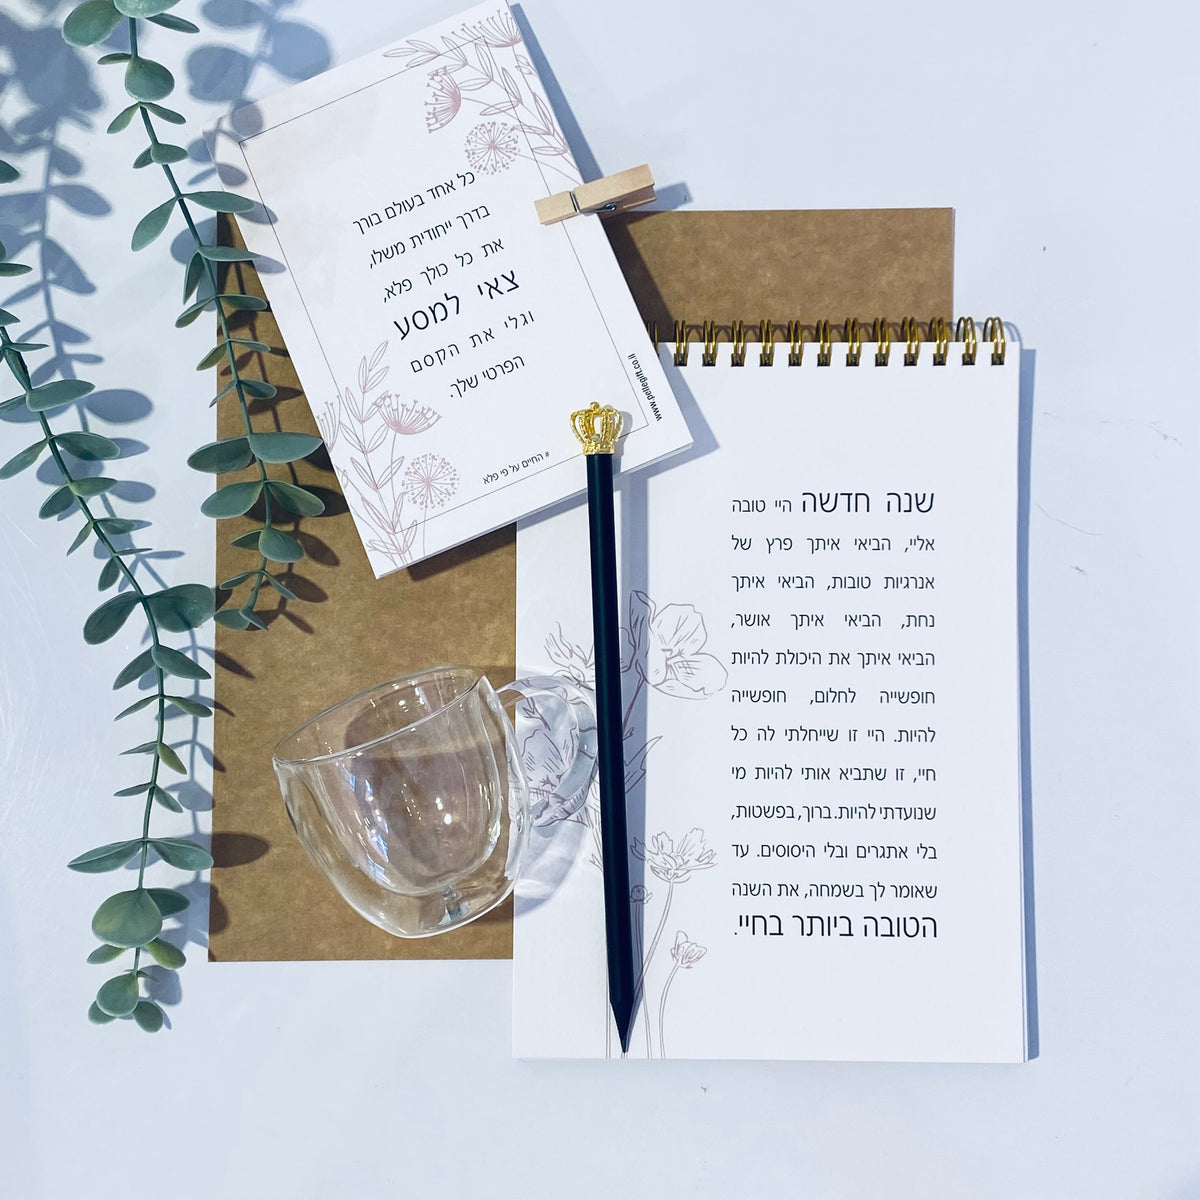 כל אחד בעולם בורך
בדרך ייחודית משלו,
את כל כולך פלא,
צאי למסע
וגלי את הקסם
הפרטי שלך.
# החיים על פי פלא
www.pellegift.co.il
שנה חדשה היי טובה
אליי, הביאי איתך פרץ של
אנרגיות טובות, הביאי איתך
נחת, הביאי איתך אושר,
הביאי איתך את היכולת להיות
חופשייה לחלום, חופשייה
להיות. היי זו שייחלתי לה כל
חיי, זו שתביא אותי להיות מי
שנועדתי להיות. ברוך, בפשטות,
בלי אתגרים ובלי היסוסים. עד
שאומר לך בשמחה, את השנה
הטובה ביותר בחיי.